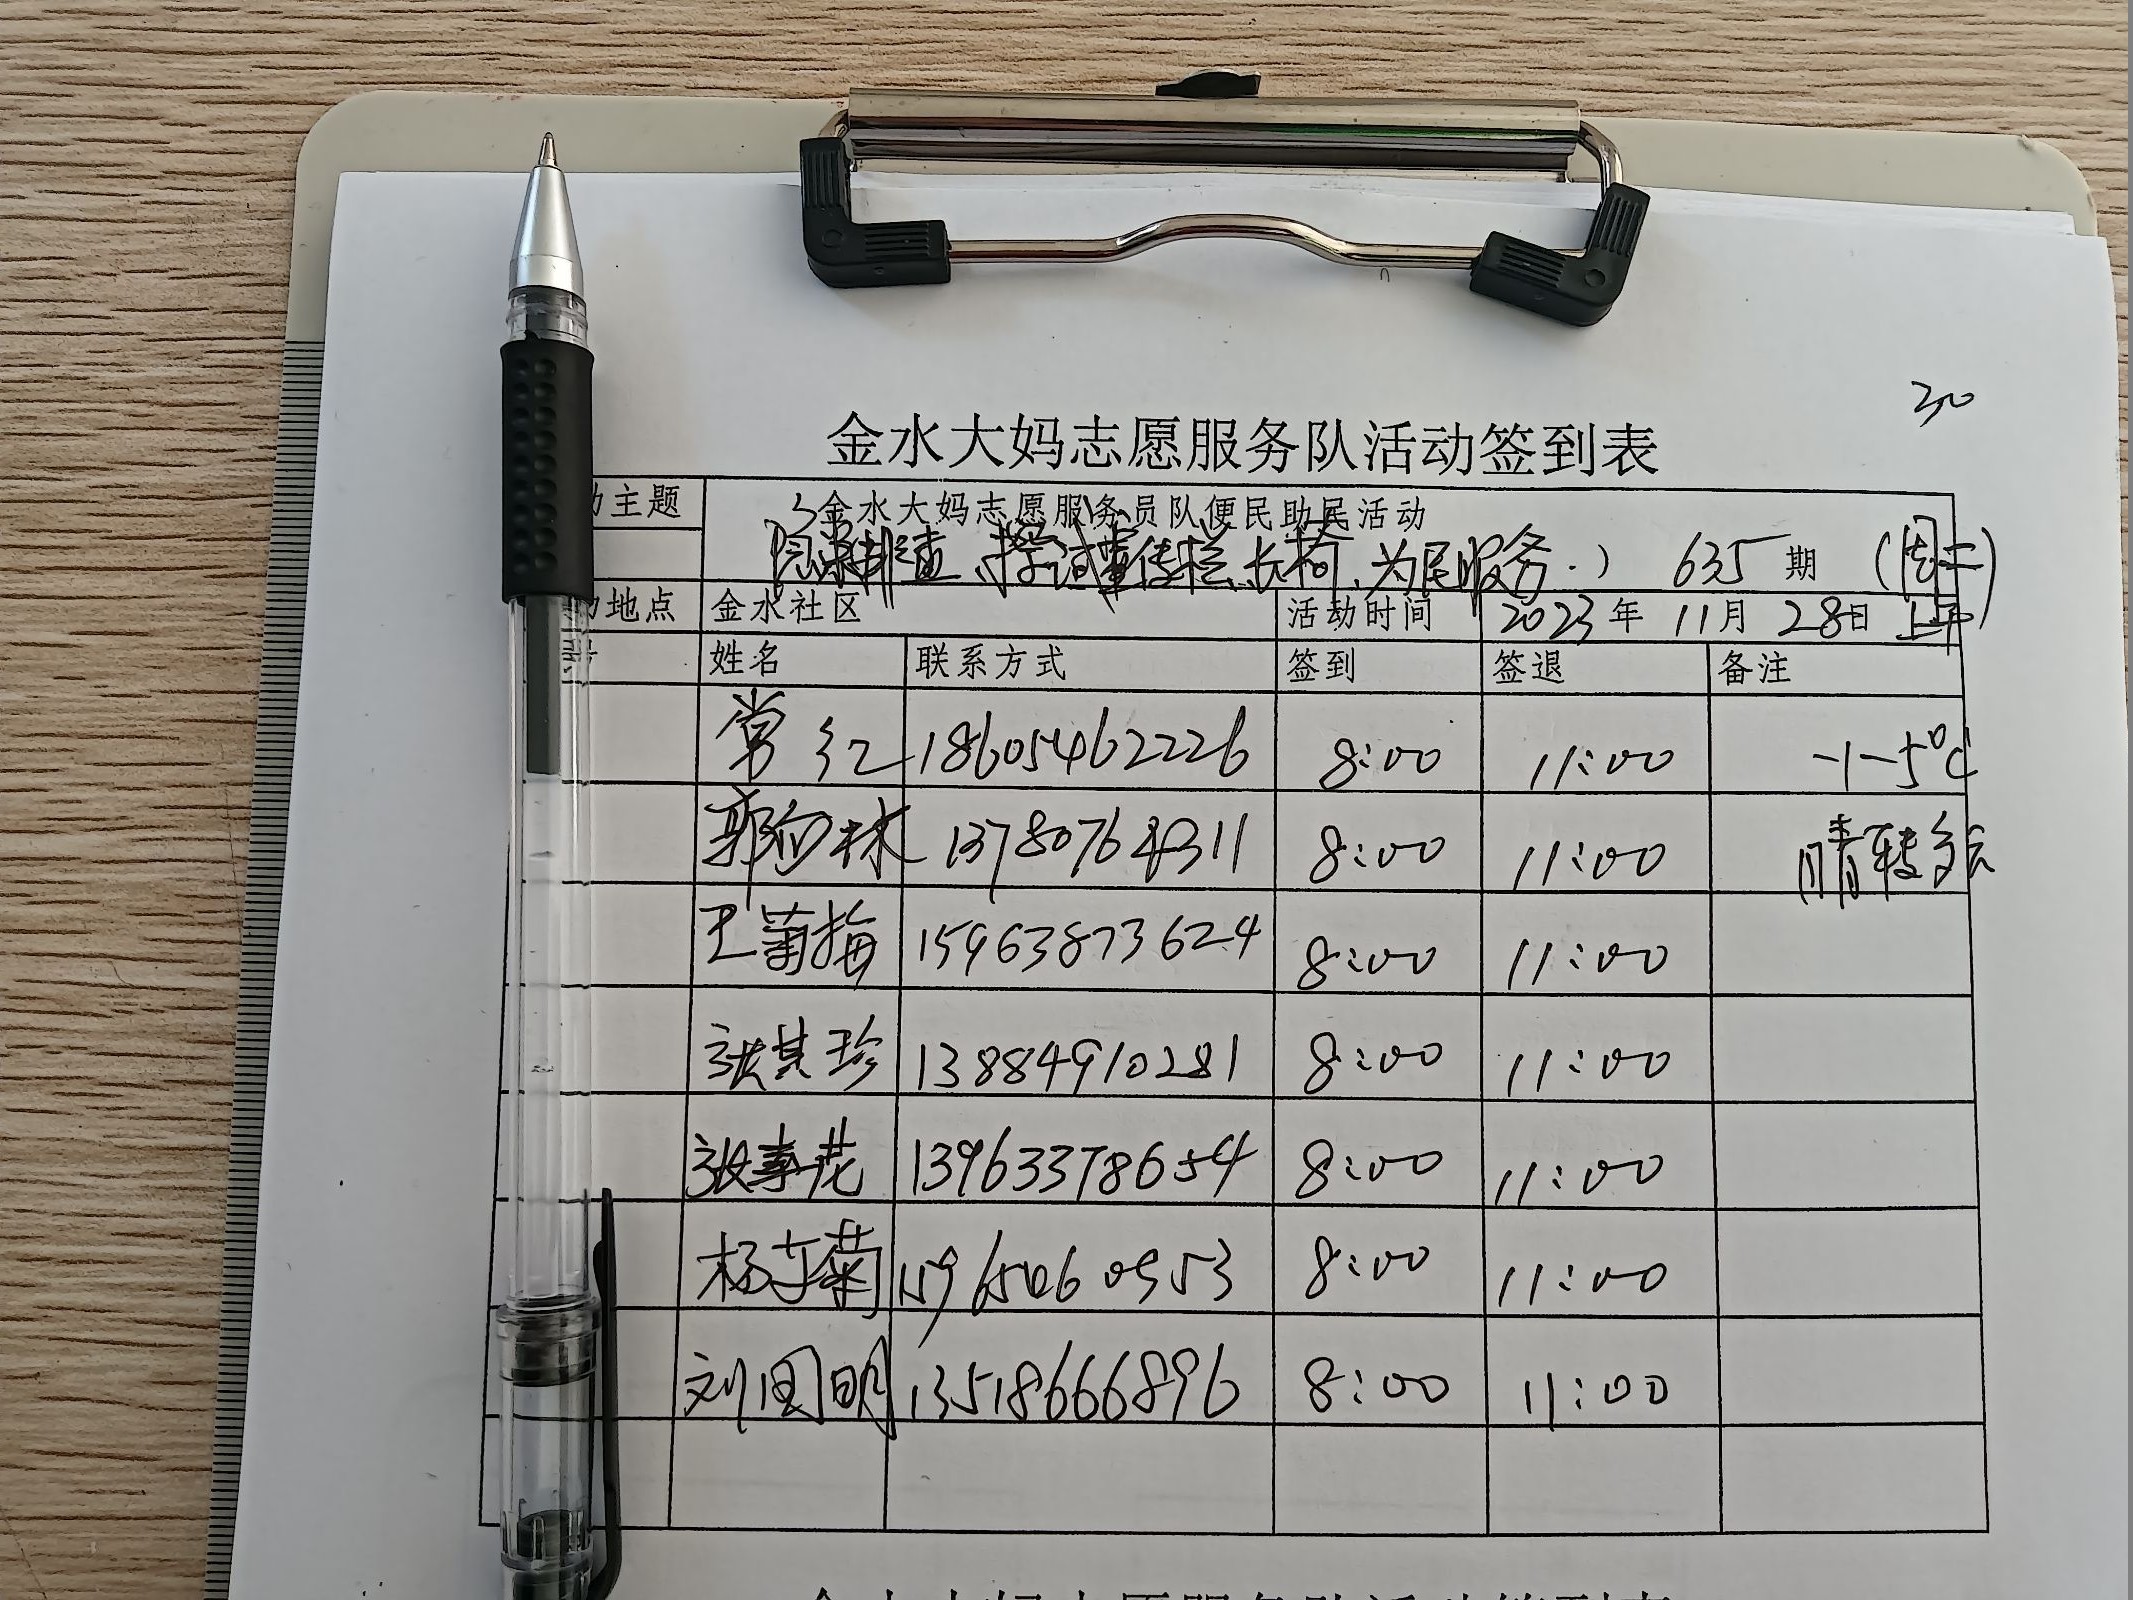 30
金水大妈志愿服务队活动签到表
动主题 金水大妈志愿服务员队便民助民活动
排查、擦试宣传栏、长椅、为民服务.） 635期 （周二）
动地点 金水社区 活动时间 2023年 11月 28日 上午
号 姓名 联系方式 签到 签退 备注
常红 18605462226 8:00 11:00 -1-5℃
郭向林 13780764311 8:00 11:00 晴转多云
王菊梅 15963873624 8:00 11:00
张其珍 13884910281 8:00 11:00
张春花 13963378654 8:00 11:00
杨女菊 15965060953 8:00 11:00
刘国明 13518666896 8:00 11:00
金水大妈志愿服务队活动签到表